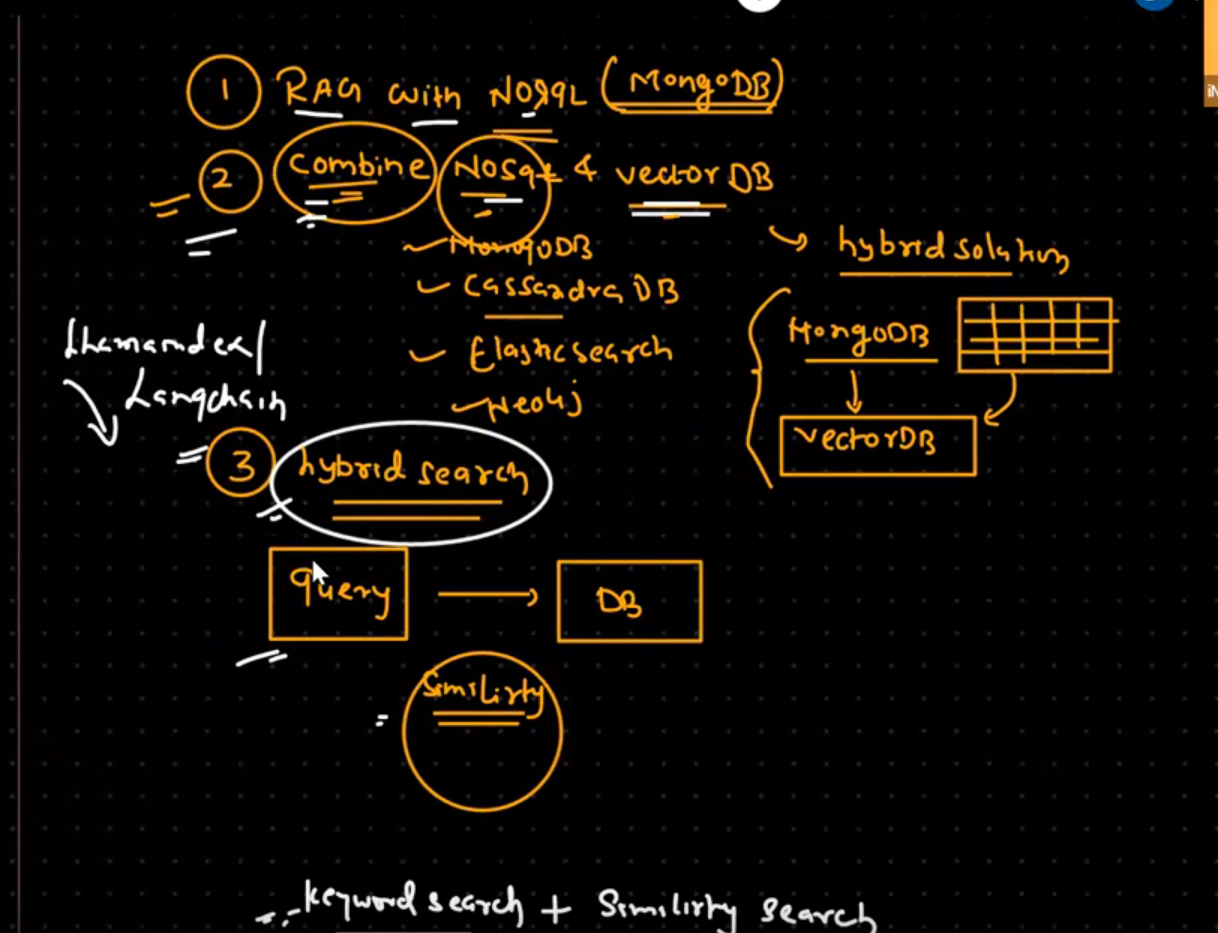 1 RAG with NOSQL (MongoDB)
2 Combine NoSQL & vector DB
MongoDB
Cassandra DB
Elasticsearch
Neo4j
hybrid solution
MongoDB
vectorDB
Llamaindex/
Langchain
3 hybrid search
query
DB
Similirty
keyword search + Similirty search